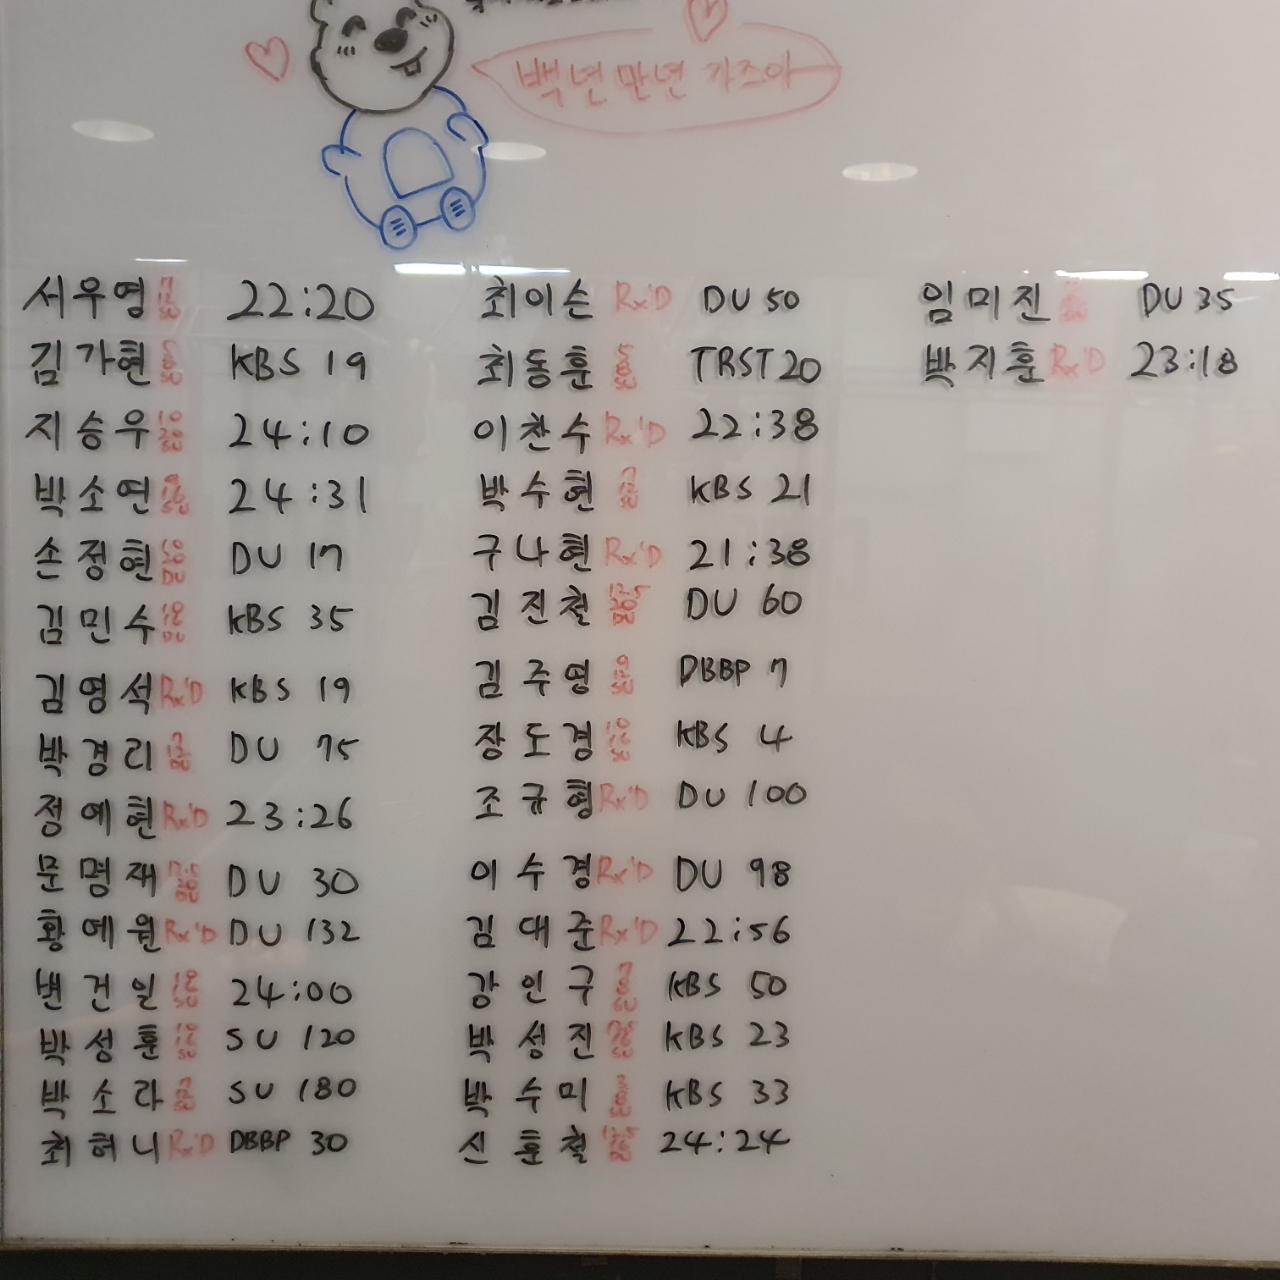 백년만년 가즈아
서우영 22:20
김가현 KBS 19
지승우 24:10
박소연 24:31
손정현 DU 17
김민수 KBS 35
김영석 Rx'D KBS 19
박경리 DU 75
정예현 Rx'D 23:26
문명재 DU 30
황예원 Rx'D DU 132
변건일 24:00
박성훈 SU 120
박소라 SU 180
최허니 Rx'D DBBP 30
최이슨 Rx'D DU 50
최동훈 TRST 20
이찬수 Rx'D 22:38
박수현 KBS 21
구나현 Rx'D 21:38
김진철 DU 60
김주영 DBBP 7
장도경 KBS 4
조규형 Rx'D DU 100
이수경 Rx'D DU 98
김대준 Rx'D 22:56
강인구 KBS 50
박성진 KBS 23
박수미 KBS 33
신훈철 24:24
임미진 DU 35
박지훈 Rx'D 23:18